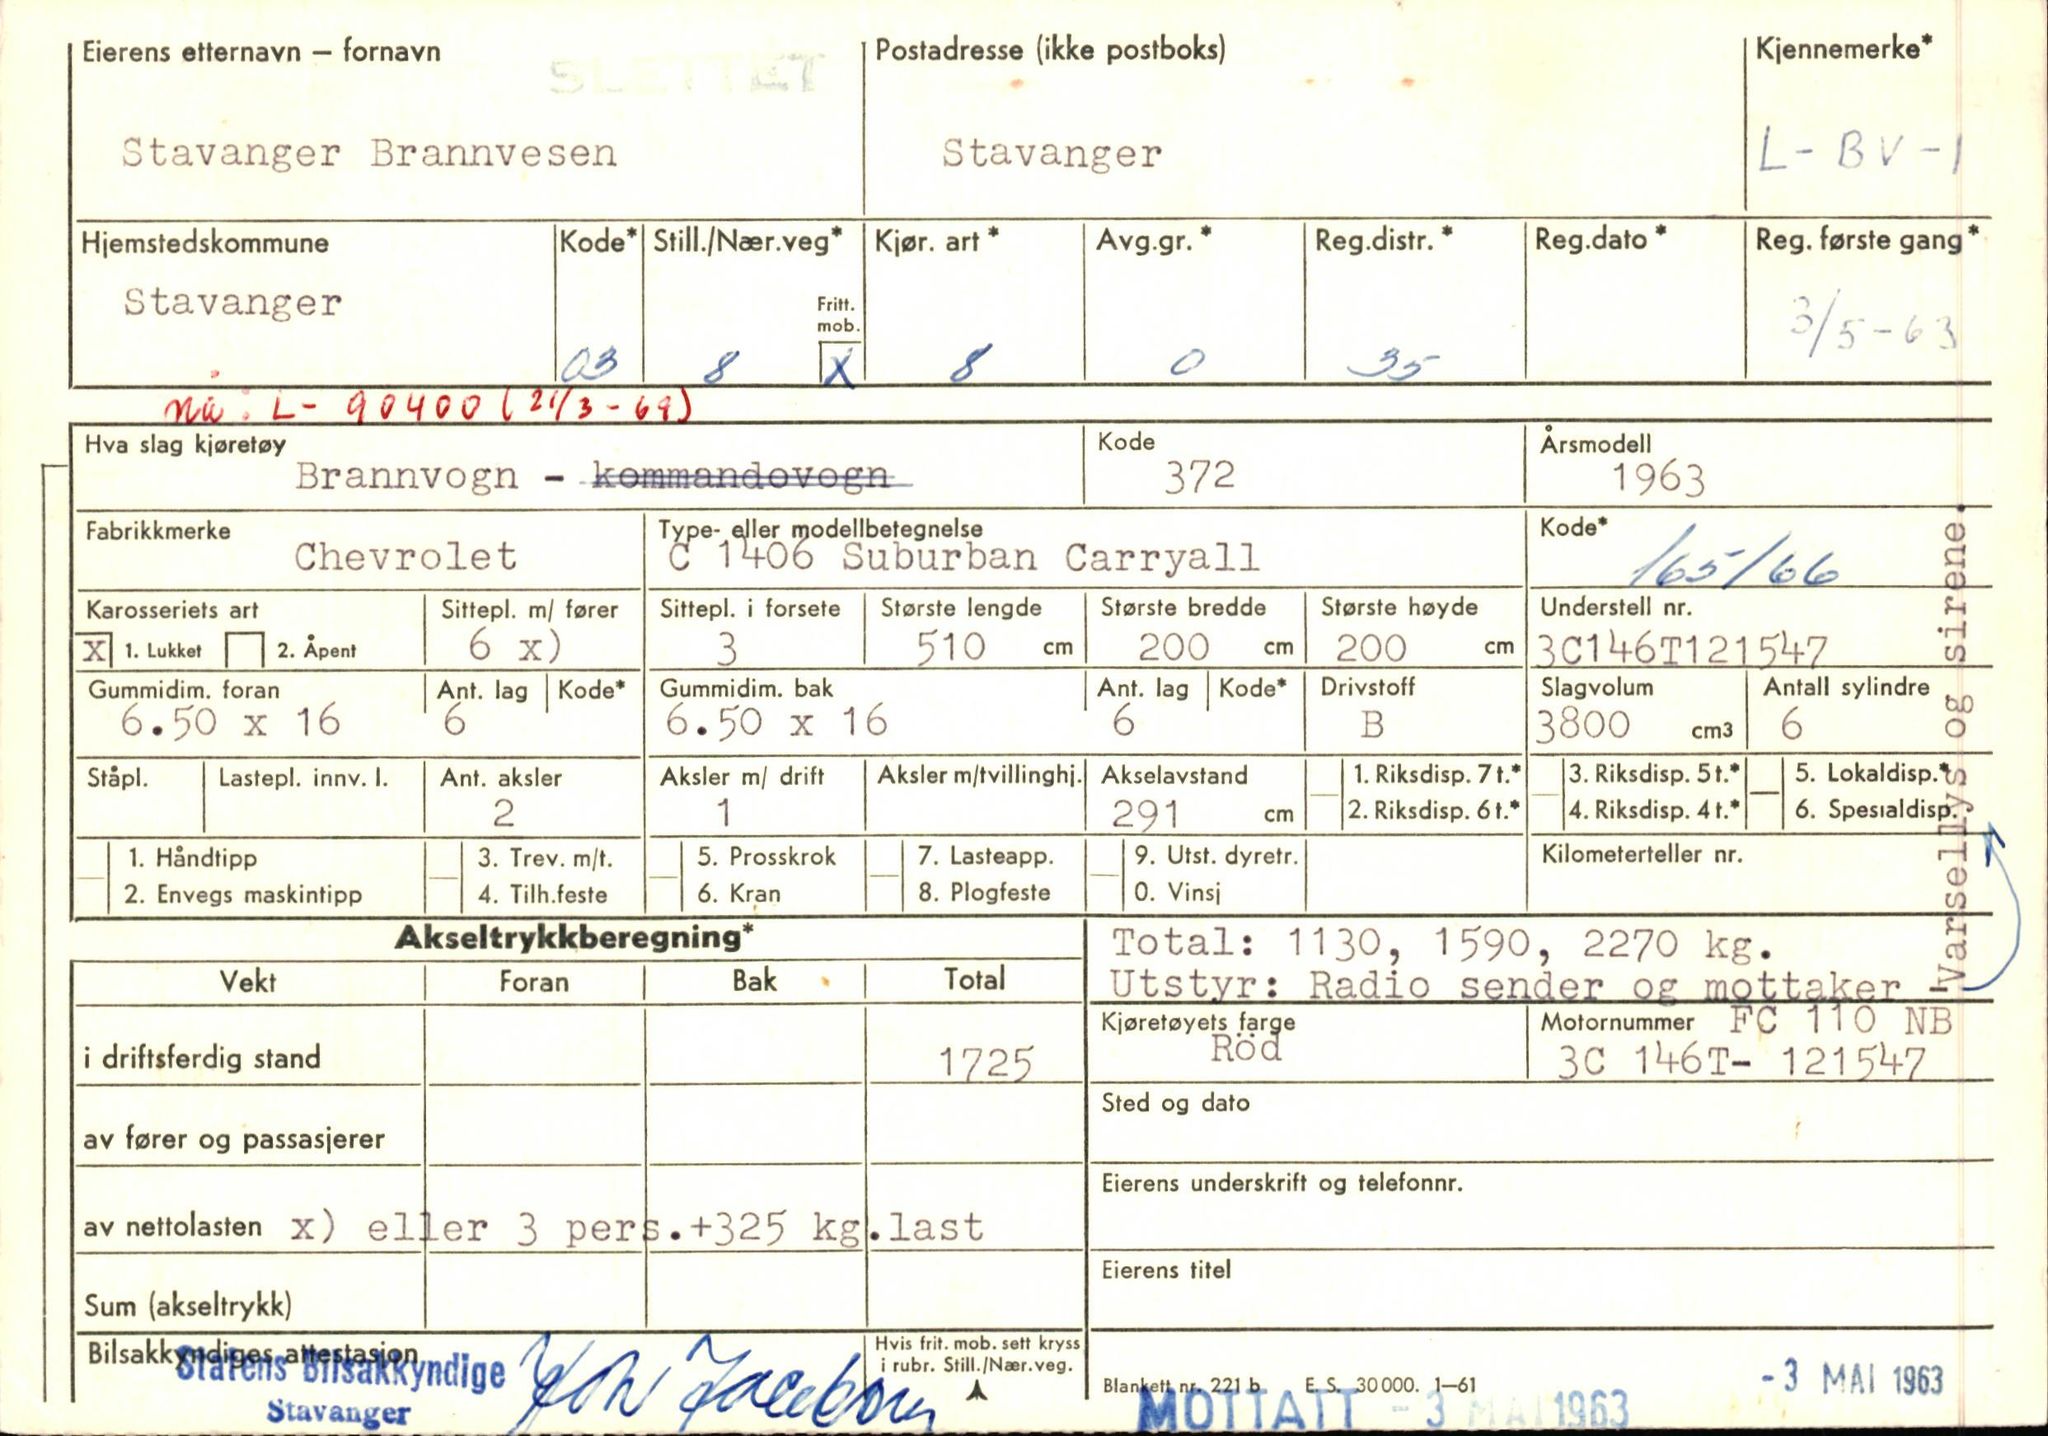 Eierens etternavn – fornavn
SLETTET
Postadresse (ikke postboks)
Kjennemerke*
Stavanger Brannvesen
Stavanger
L- BV -1
Hjemstedskommune
Kode*
Still./Nær.veg*
Kjør. art *
Avg.gr. *
Reg.distr. *
Reg.dato *
Reg. første gang *
Stavanger
Fritt.
mob.
03
8
X
8
0
35
3/5-63
nå: L- 90400 (21/3-69)
Hva slag kjøretøy
Kode
Årsmodell
Brannvogn - kommandovogn
372
1963
Fabrikkmerke
Type- eller modellbetegnelse
Kode*
Chevrolet
C 1406 Suburban Carryall
165/66
Karosseriets art
Sittepl. m/ fører
Sittepl. i forsete
Største lengde
Største bredde
Største høyde
Understell nr.
X 1. Lukket 2. Åpent
6 x)
3
510 cm
200 cm
200 cm
3C146T121547
Gummidim. foran
Ant. lag
Kode*
Gummidim. bak
Ant. lag
Kode*
Drivstoff
Slagvolum
Antall sylindre
6.50 x 16
6
6.50 x 16
6
B
3800 cm3
6
Ståpl.
Lastepl. innv. l.
Ant. aksler
Aksler m/ drift
Aksler m/tvillinghj.
Akselavstand
1. Riksdisp. 7 t.*
3. Riksdisp. 5 t.*
5. Lokaldisp.*
2
1
291 cm
2. Riksdisp. 6 t.*
4. Riksdisp. 4 t.*
6. Spesialdisp.
1. Håndtipp
3. Trev. m/t.
5. Prosskrok
7. Lasteapp.
9. Utst. dyretr.
Kilometerteller nr.
2. Envegs maskintipp
4. Tilh.feste
6. Kran
8. Plogfeste
0. Vinsj
Varsellys og sirene.
Akseltrykkberegning*
Total: 1130, 1590, 2270 kg.
Utstyr: Radio sender og mottaker
Vekt
Foran
Bak
Total
Kjøretøyets farge
Röd
Motornummer FC 110 NB
3C 146T- 121547
i driftsferdig stand
1725
Sted og dato
av fører og passasjerer
Eierens underskrift og telefonnr.
av nettolasten x) eller 3 pers.+325 kg.last
Eierens titel
Sum (akseltrykk)
Bilsakkyndiges attestasjon
Statens Bilsakkyndige
Stavanger
Hvis frit. mob. sett kryss
i rubr. Still./Nær.veg.
Blankett nr. 221 b E. S. 30 000. 1—61
- 3 MAI 1963
MOTTATT - 3 MAI 1963